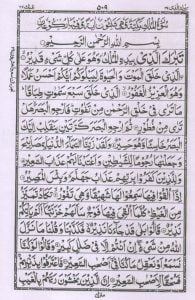 ٥٠٩
بِسْمِ اللهِ الرَّحْمٰنِ الرَّحِيْمِ
تَبٰرَكَ الَّذِيْ بِيَدِهِ الْمُلْكُ وَهُوَ عَلٰى كُلِّ شَيْءٍ قَدِيْرُ
الَّذِيْ خَلَقَ الْمَوْتَ وَالْحَيٰوةَ لِيَبْلُوَكُمْ اَيُّكُمْ اَحْسَنُ عَمَلًا
وَهُوَ الْعَزِيْزُ الْغَفُوْرُ الَّذِيْ خَلَقَ سَبْعَ سَمٰوٰتٍ طِبَاقًا
مَا تَرٰى فِيْ خَلْقِ الرَّحْمٰنِ مِنْ تَفٰوُتٍ فَارْجِعِ الْبَصَرَ هَلْ
تَرٰى مِنْ فُطُوْرٍ ثُمَّ ارْجِعِ الْبَصَرَ كَرَّتَيْنِ يَنْقَلِبْ اِلَيْكَ
الْبَصَرُ خَاسِئًا وَّهُوَ حَسِيْرٌ وَلَقَدْ زَيَّنَّا السَّمَآءَ الدُّنْيَا بِمَصَابِيْحَ
وَجَعَلْنٰهَا رُجُوْمًا لِّلشَّيٰطِيْنِ وَاَعْتَدْنَا لَهُمْ عَذَابَ السَّعِيْرِ
وَلِلَّذِيْنَ كَفَرُوْا بِرَبِّهِمْ عَذَابُ جَهَنَّمَ وَبِئْسَ الْمَصِيْرُ
اِذَآ اُلْقُوْا فِيْهَا سَمِعُوْا لَهَا شَهِيْقًا وَّهِيَ تَفُوْرُ تَكَادُ تَمَيَّزُ
مِنَ الْغَيْظِ كُلَّمَآ اُلْقِيَ فِيْهَا فَوْجٌ سَاَلَهُمْ خَزَنَتُهَآ اَلَمْ يَاْتِكُمْ
نَذِيْرٌ قَالُوْا بَلٰى قَدْ جَآءَنَا نَذِيْرٌ فَكَذَّبْنَا وَقُلْنَا مَا نَزَّلَ
اللهُ مِنْ شَيْءٍ اِنْ اَنْتُمْ اِلَّا فِيْ ضَلٰلٍ كَبِيْرٍ وَقَالُوْا لَوْ كُنَّا
نَسْمَعُ اَوْ نَعْقِلُ مَا كُنَّا فِيْٓ اَصْحٰبِ السَّعِيْرِ فَاعْتَرَفُوْا بِذَنْبِهِمْ
فَسُحْقًا لِّاَصْحٰبِ السَّعِيْرِ اِنَّ الَّذِيْنَ يَخْشَوْنَ رَبَّهُمْ بِالْغَيْبِ